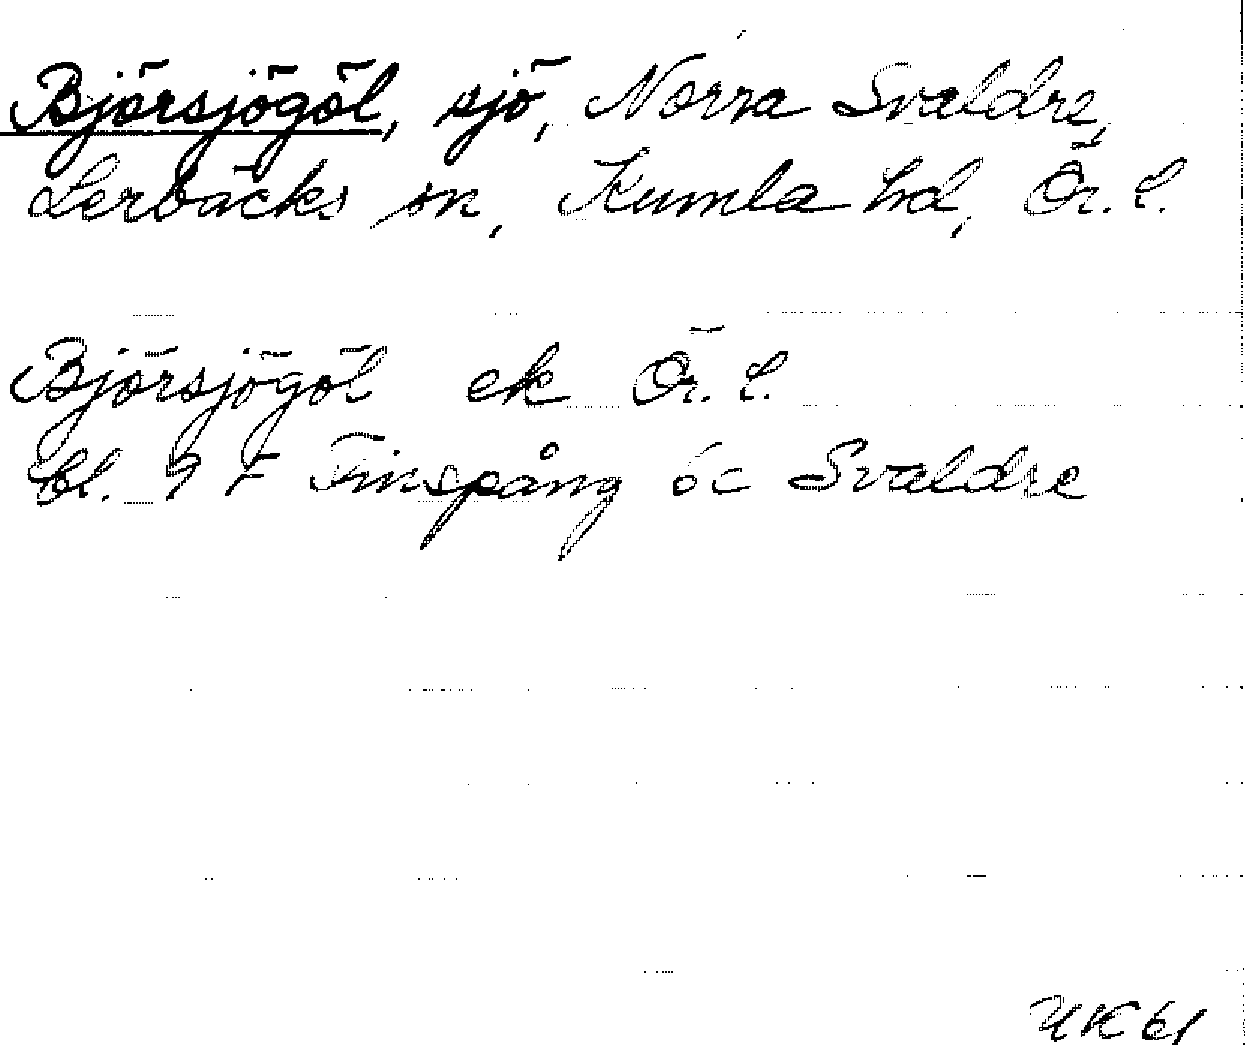 Björsjögöl, sjö, Norra Svaldre,
Lerbäcks sn, Kumla hd, Ör. l.
Björsjögöl ek Ör. l.
bl. 9 F Finspång 6c Svaldre
UK 61